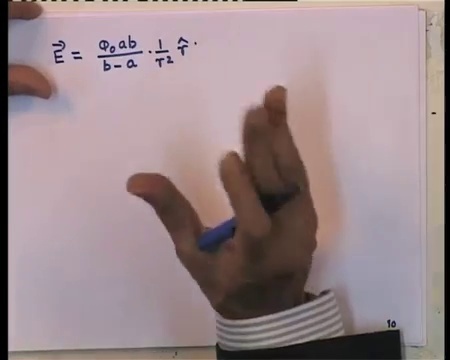 E⃗ = φ₀ab / (b − a) · 1/r² r̂.
10